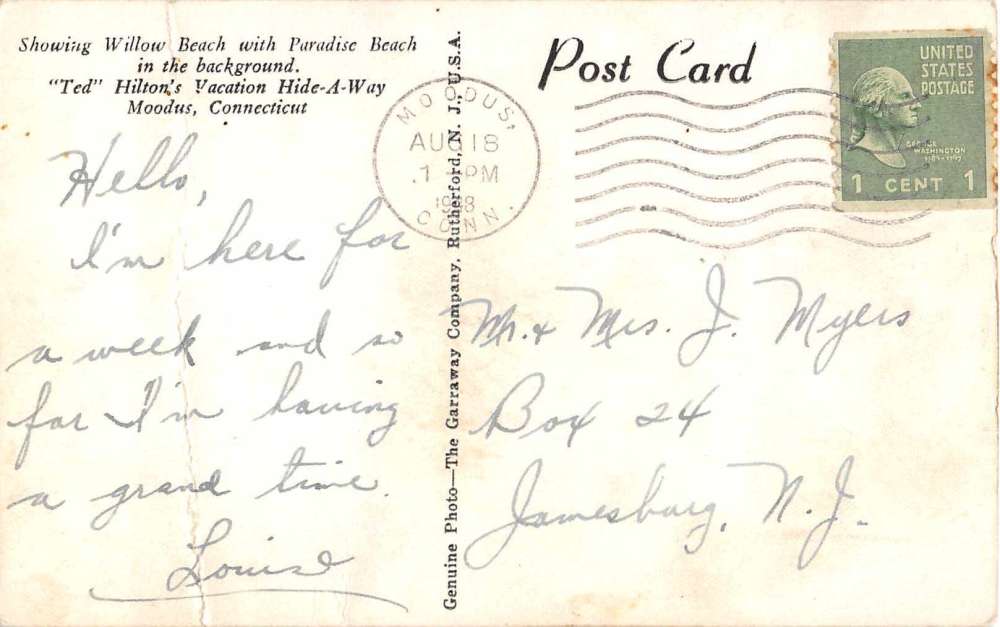 Showing Willow Beach with Paradise Beach
in the background.
"Ted" Hilton's Vacation Hide-A-Way
Moodus, Connecticut
Post Card
UNITED
STATES
POSTAGE
GEORGE
WASHINGTON
1789-1797
1 CENT 1
MOODUS,
AUG 18
1 PM
1948
CONN.
Genuine Photo—The Garraway Company, Rutherford, N. J., U.S.A.
Hello,
I'm here for
a week and so
far I'm having
a grand time.
Louise
Mr. & Mrs. J. Myers
Box 24
Jamesburg, N. J.